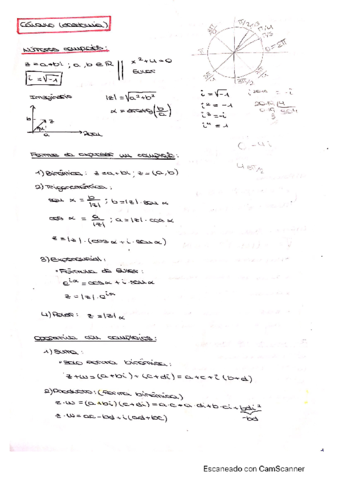 Números complejos:
z = a+bi ; a, b ∈ R || x²+4=0
Euler
i = √-1
Imaginario
|z| = √a²+b²
α = arctg (b/a)
b
z
a
Real
i = √-1
i² = -1
i³ = -i
i⁴ = 1
Formas de expresar un complejo:
1) Binómica: z = a+bi ; z = (a, b)
2) Trigonométrica:
sen α = b/|z| ; b = |z| · sen α
cos α = a/|z| ; a = |z| · cos α
z = |z| · (cos α + i · sen α)
3) Exponencial:
• Fórmula de Euler:
e^iα = cos α + i · sen α
z = |z| · e^iα
4) Polar: z = |z| α
Operaciones con complejos:
1) Suma:
• Solo forma binómica:
z+w = (a+bi) + (c+di) = a+c+i(b+d)
2) Producto: (Forma binómica)
z·w = (a+bi)(c+di) = a·c+a·di+b·ci+bdi²
-bd
z·w = ac-bd+i(ad+bc)
Escaneado con CamScanner